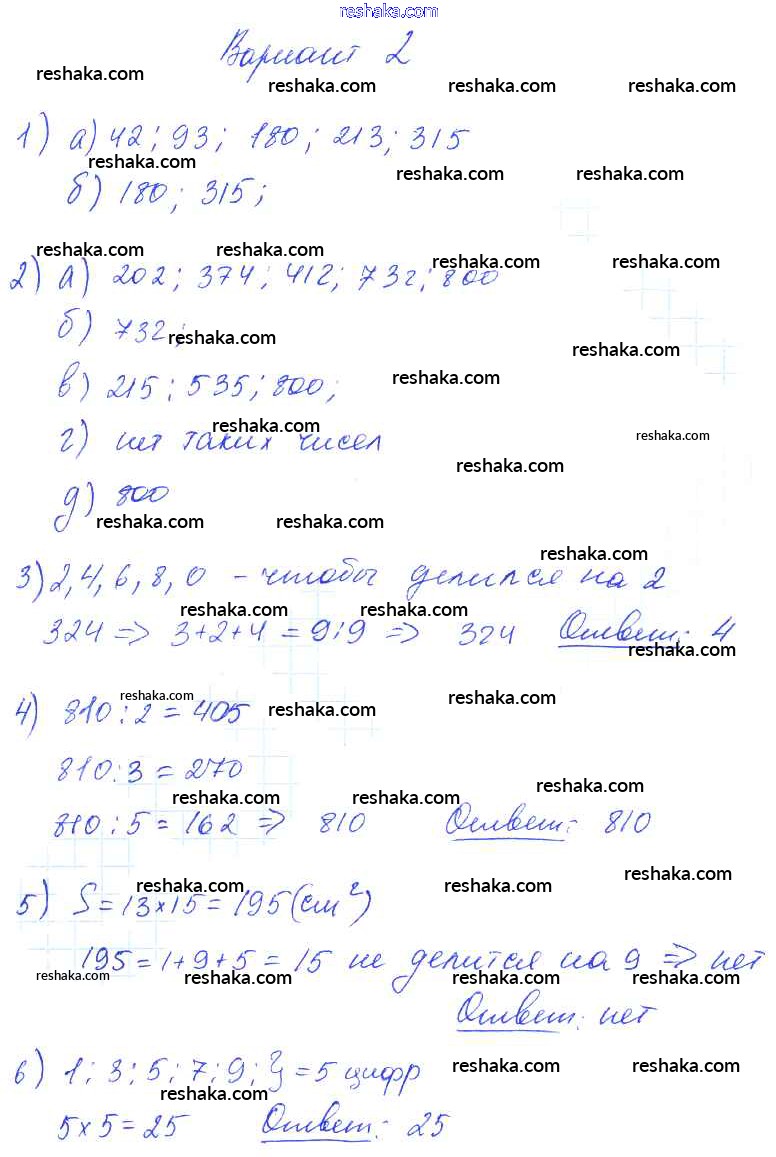 reshaka.com
Вариант 2
reshaka.com reshaka.com reshaka.com reshaka.com
1) а) 42; 93; 180; 213; 315
reshaka.com reshaka.com reshaka.com
б) 180; 315;
reshaka.com reshaka.com reshaka.com reshaka.com
2) а) 202; 374; 412; 732; 800
б) 732;
reshaka.com reshaka.com
в) 215; 535; 800;
reshaka.com
г) нет таких чисел
reshaka.com reshaka.com
reshaka.com
д) 800
reshaka.com reshaka.com
reshaka.com
3) 2, 4, 6, 8, 0 - чтобы делился на 2
reshaka.com reshaka.com
324 => 3+2+4 = 9:9 => 324 Ответ: 4
reshaka.com
reshaka.com reshaka.com reshaka.com
4) 810 : 2 = 405
810 : 3 = 270
reshaka.com reshaka.com reshaka.com
810 : 5 = 162 => 810 Ответ: 810
reshaka.com reshaka.com reshaka.com
5) S = 13 × 15 = 195 (см²)
195 = 1+9+5 = 15 не делится на 9 => нет
reshaka.com reshaka.com reshaka.com reshaka.com
Ответ: нет
6) 1; 3; 5; 7; 9; } = 5 цифр
reshaka.com reshaka.com reshaka.com reshaka.com
5 × 5 = 25 Ответ: 25